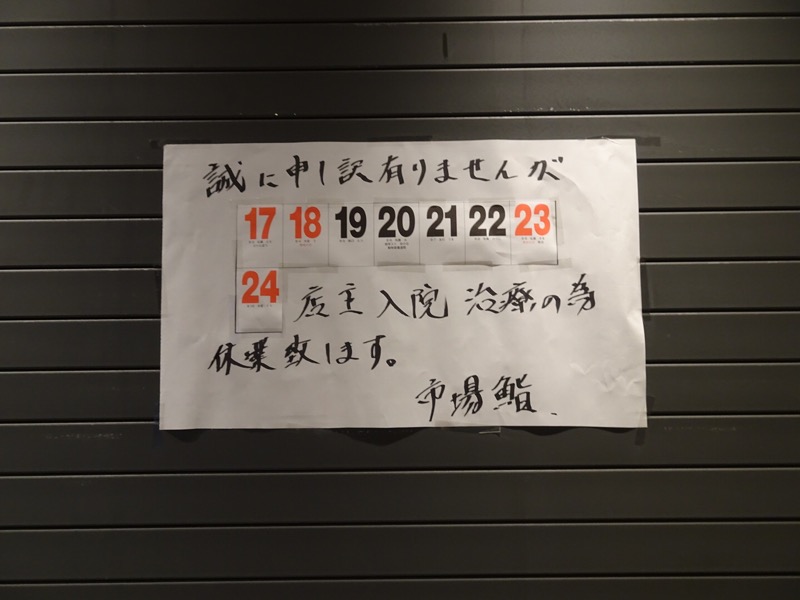 誠に申し訳有りませんが
17 18 19 20 21 22 23
24 店主入院治療の為
休業致します。
市場鮨